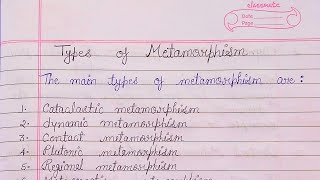 classmate
Date
Page
Types of Metamorphism
The main types of metamorphism are :
1- Cataclastic metamorphism
2- dynamic metamorphism
3- Contact metamorphism
4- Plutonic metemorphism
5- Regional metamorphism